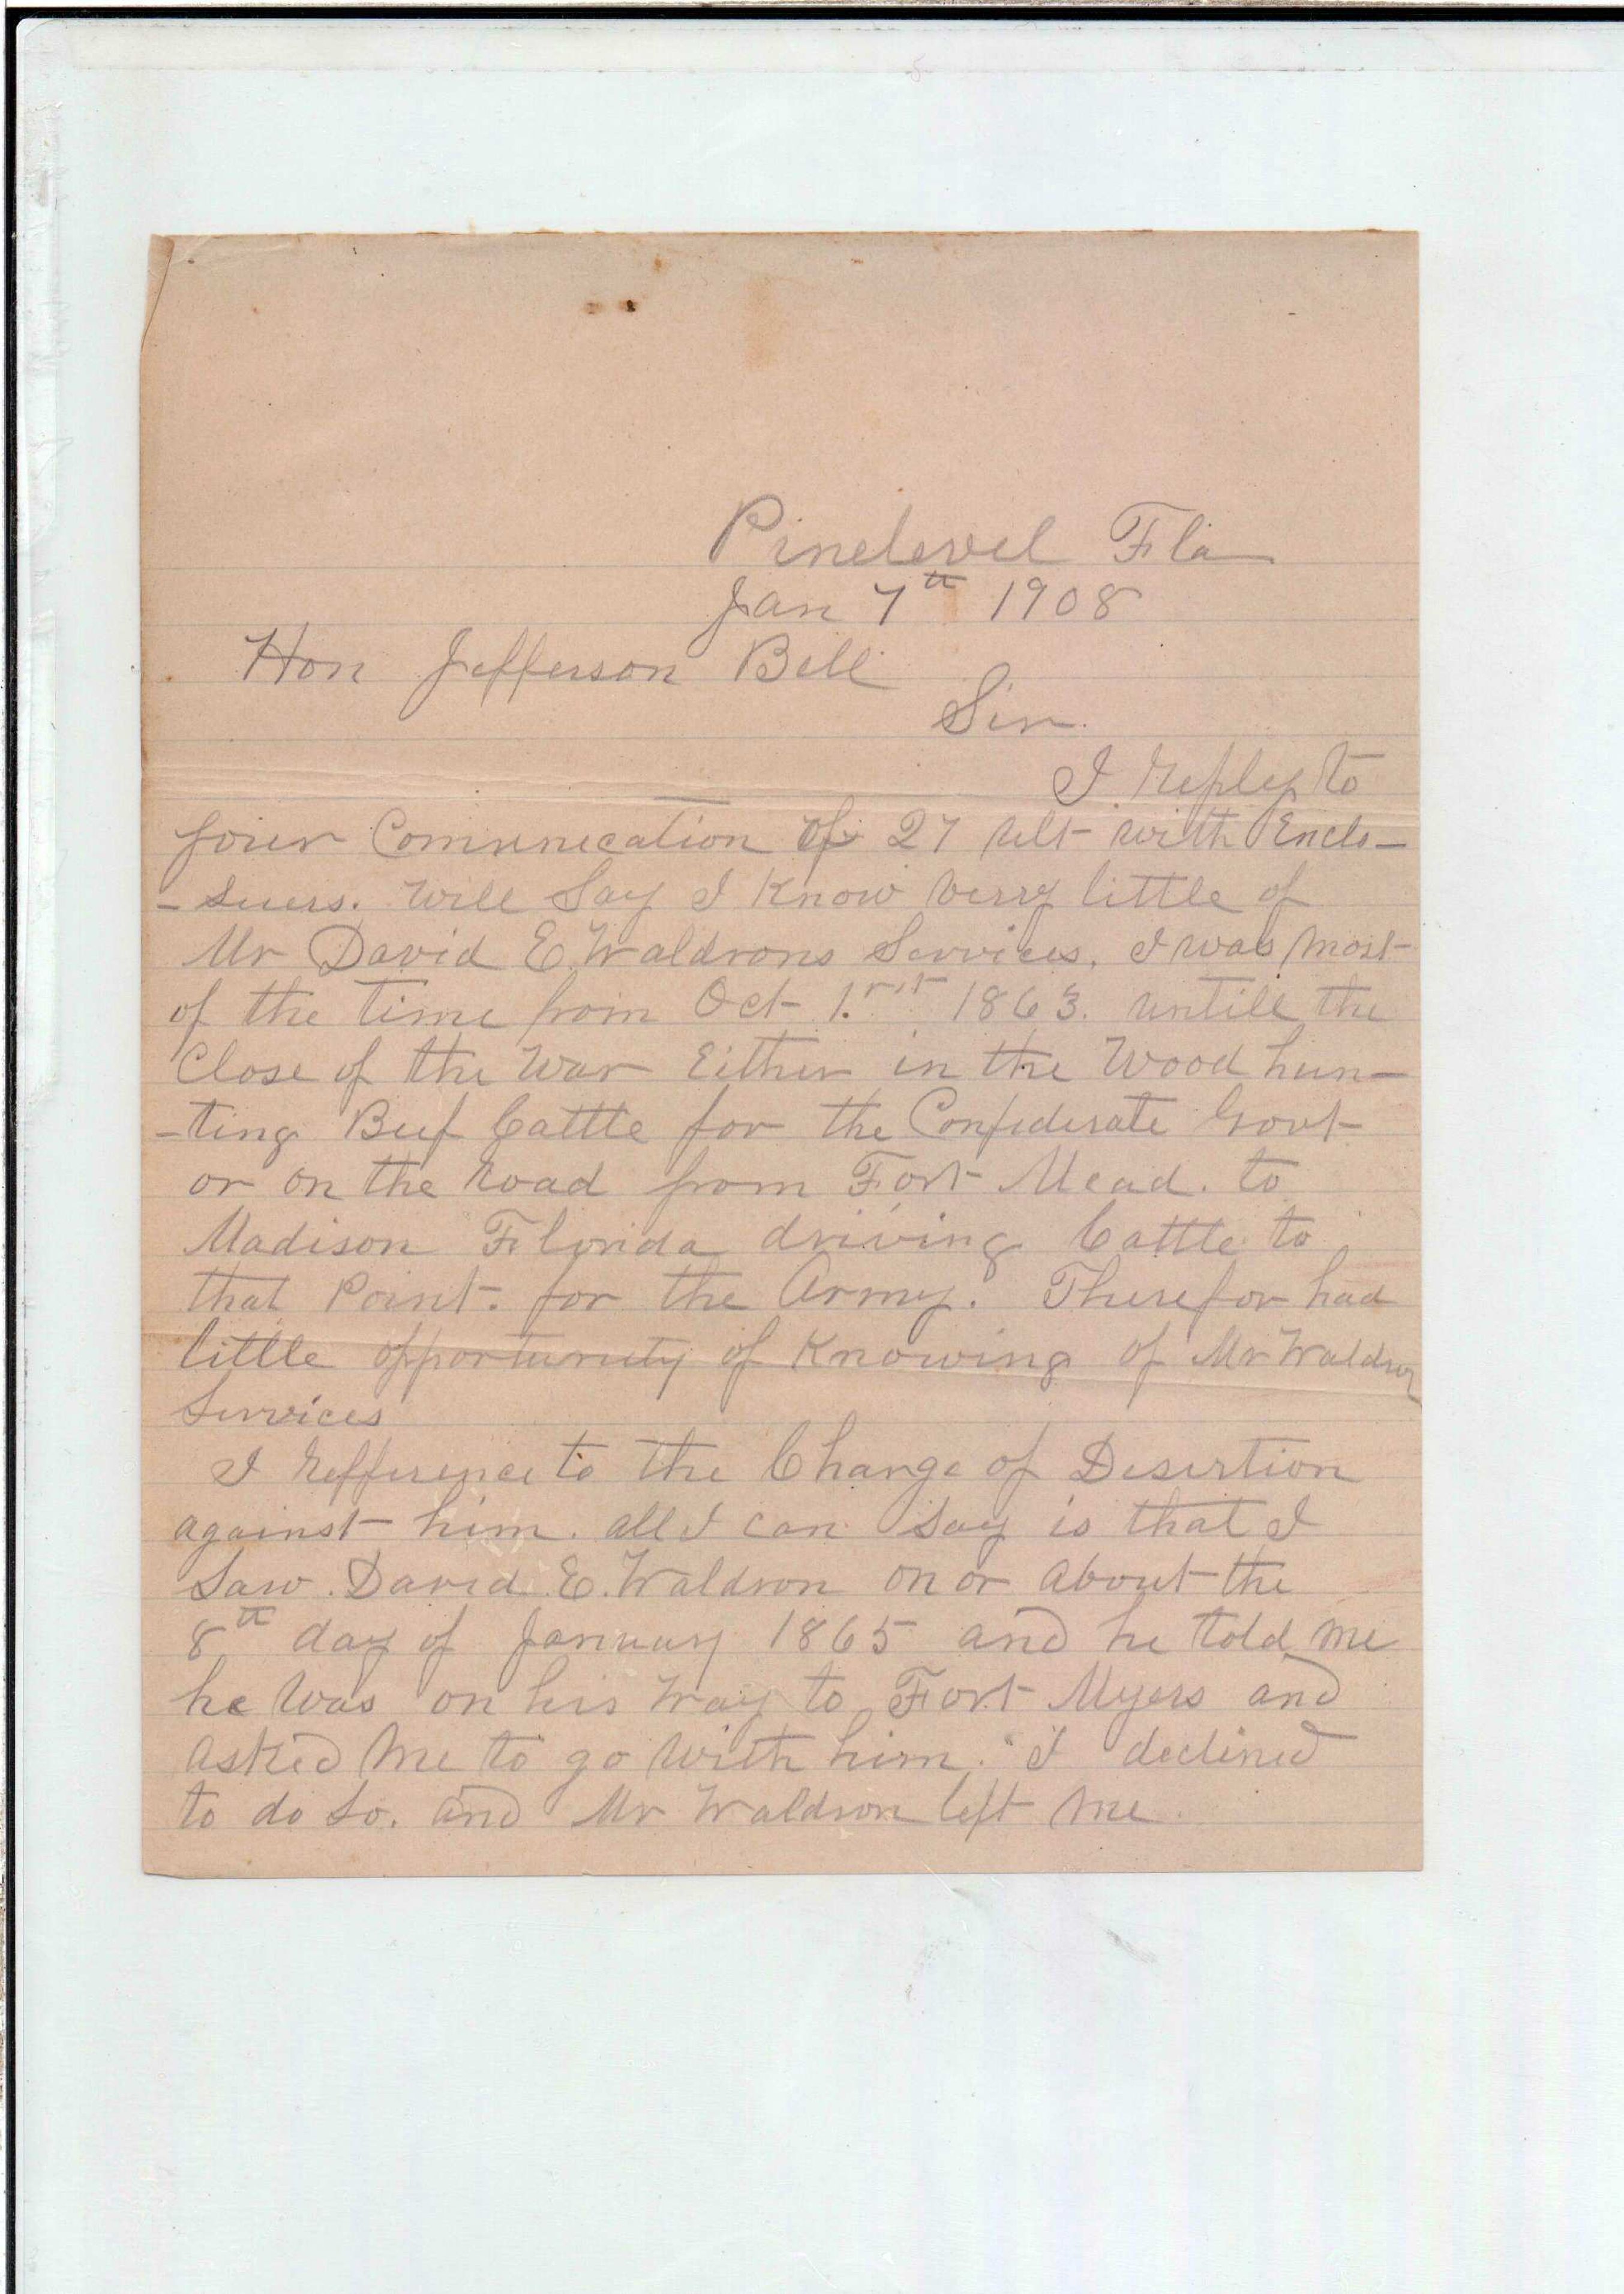 Pinelevel Fla
Jan 7th 1908
Hon Jefferson Bell
Sir.
I reply to
your Comunecation of 27 ult with Enclo-
-suers. Will Say I Know very little of
Mr David E. Waldrons Services. I was most
of the time from Oct 1.rst 1863. untill the
Close of the War Either in the Wood hun-
-ting Beef Cattle for the Confederate Govt
or on the Road from Fort Mead. to
Madison Florida driving Cattle to
that Point. for the Army. Therefor had
little opportunity of Knowing of Mr Waldron
Services
I Refference to the Charge of Desertion
against him. all I can Say is that I
Saw David E. Waldron on or about the
8th day of January 1865 and he told me
he was on his way to Fort Myers and
asked me to go with him. I declined
to do so. and Mr Waldron left me.